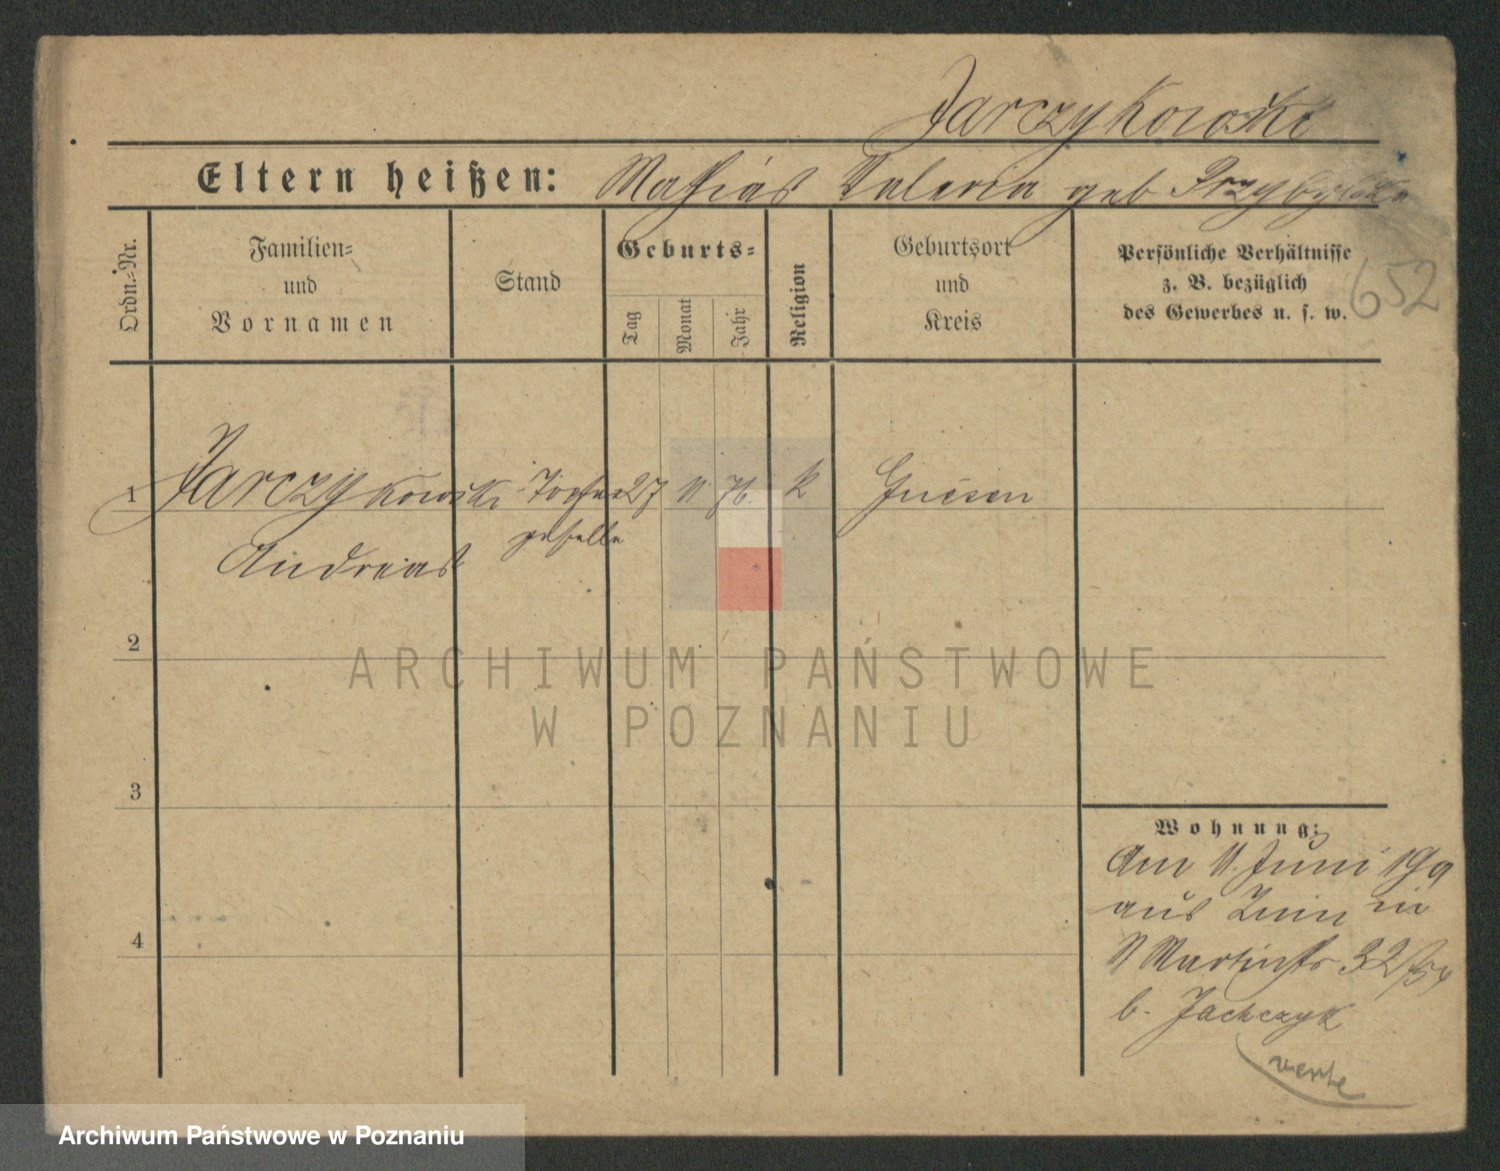 Jarczykowski
Eltern heißen: Mathias Valeria geb Przybylska
Ordn.-Nr.
Familien-
und
Vornamen
Stand
Geburts-
Tag
Monat
Jahr
Religion
Geburtsort
und
Kreis
Persönliche Verhältnisse
z. B. bezüglich
des Gewerbes u. s. w.
652
1 Jarczykowski 27 11 76. k Gnesen
geselle
Andreas
2
ARCHIWUM PAŃSTWOWE
W POZNANIU
3
Wohnung:
Am 11. Juni 199
aus Znin in
St Martinstr 32/34
4
b. Jachczyk
verte
Archiwum Państwowe w Poznaniu